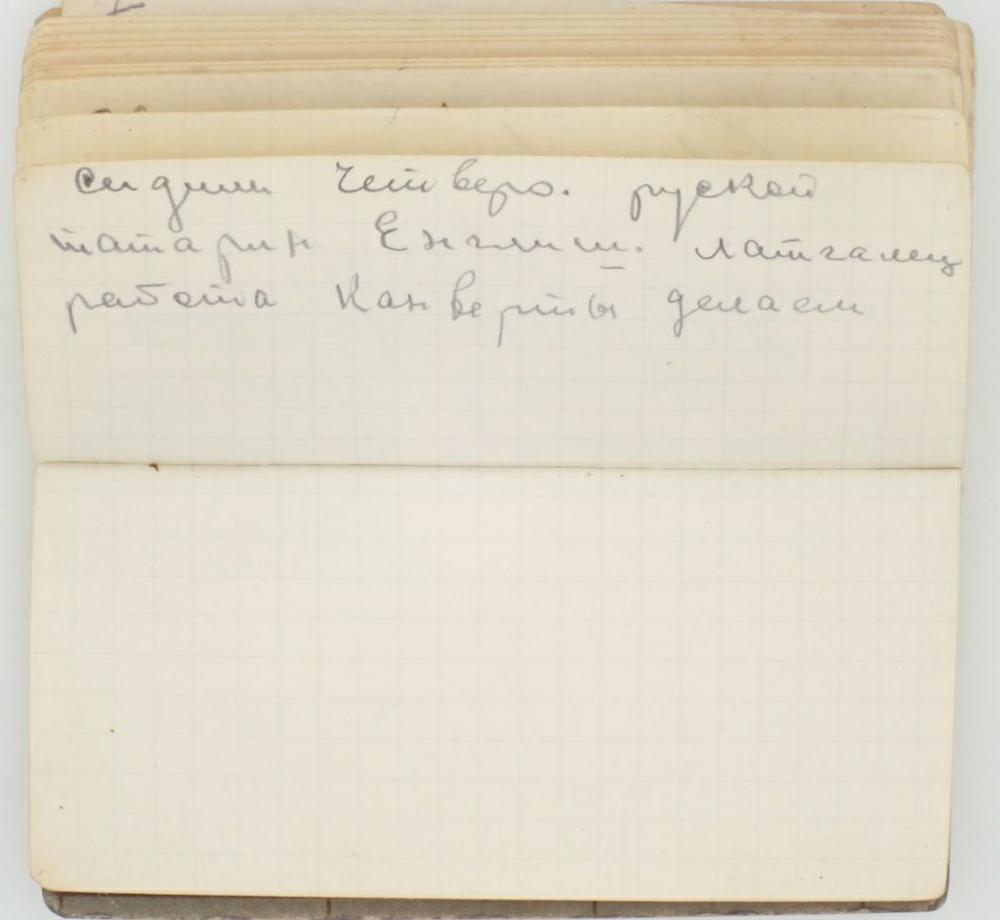 сидим четверо. руской
татарин Енглиш. латгалец
работа Канверты делаем